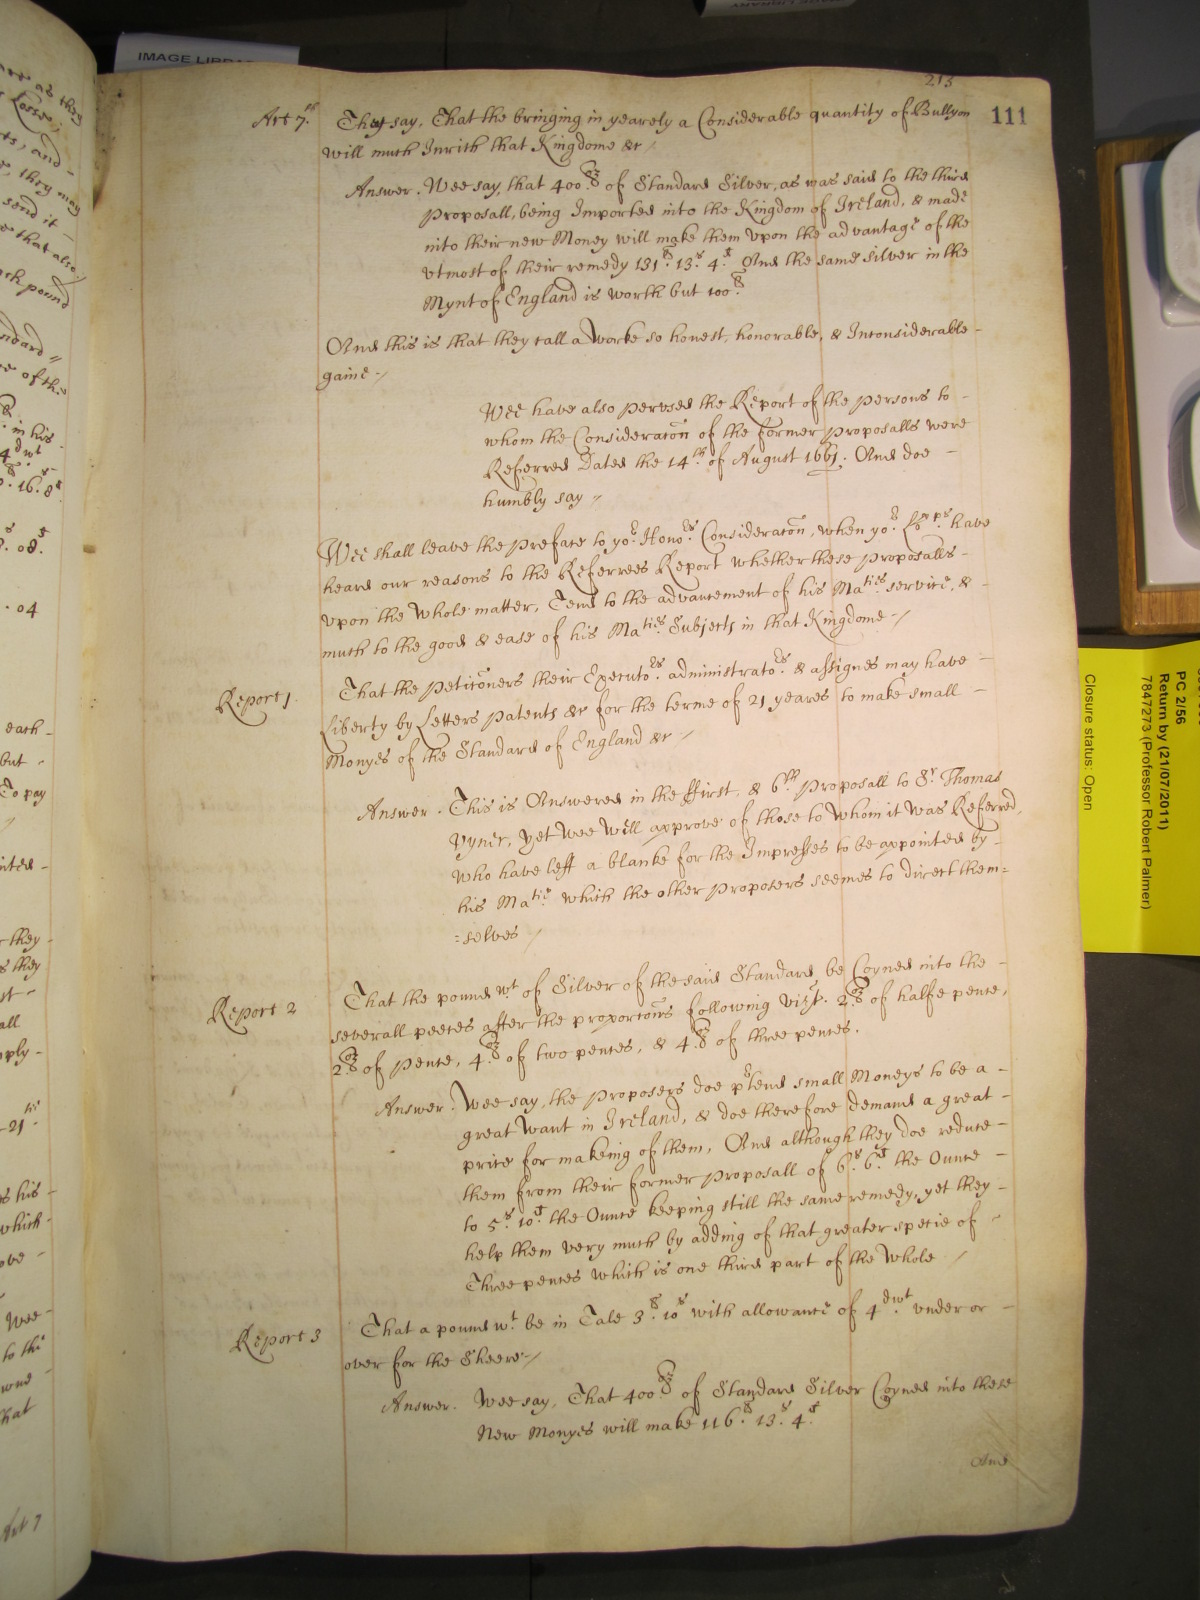 IMAGE LIBRA
213
111
Art 7.th They say, That the bringing in yearely a Considerable quantity of Bullyon
will much Inrich that Kingdome &c
Answer. Wee say, that 400.oz of Standard Silver, as was said to the third
proposall, being Imported into the Kingdom of Ireland, & made
into their new Money will make them upon the advantage of the
vtmost of their remedy 131.li 13.s 4.d And the same silver in the
Mynt of England is worth but 100.li
And this is that they call a Worke so honest, honorable, & Inconsiderable
gaine
Wee have also perused the Report of the persons to
whom the Consideracōn of the former proposalls were
Referred Dated the 14.th of August 1661. And doe
humbly say
Wee shall leave the preface to yo.r Hono.rs Consideracōn, when yo.r Lo.pps have
heard our reasons to the Referrees Report whether these proposalls
vpon the Whole matter, Tend to the advancement of his Ma.ties service, &
much to the good & ease of his Ma.ties Subjects in that Kingdome
Report 1. That the peticōners their Executo.rs administrato.rs & assignes may have
Liberty by Letters patents &c for the terme of 21 yeares to make small
Monyes of the Standard of England &c
Answer. This is Answered in the ffirst, & 6th proposall to Sr. Thomas
Vyner, yet Wee Will approve of those to Whom it was Referred,
Who have left a blanke for the Impresses to be appointed by
his Ma.tie which the other proposers seemes to direct them=
=selves
Report 2 That the pound w.t of Silver of the said Standard be Coyned into the
severall peeces after the proporcōns following vizt. 2.oz of halfe pence,
2.oz of pence, 4.oz of two pences, & 4.oz of three pences.
Answer. Wee say, the proposers doe prtend small Moneys to be a
great Want in Ireland, & doe therefore demand a great
price for makeing of them, And although they doe reduce
them from their former proposall of 6.s 6.d the Ounce
to 5.s 10.d the Ounce keeping still the same remedy, yet they
help them very much by adding of that greater specie of
Three pences which is one third part of the Whole
Report 3 That a pound w.t be in Tale 3.li 10.s with allowance of 4.dwt vnder or
over for the Sheere
Answer. Wee say, That 400.oz of Standard Silver Coyned into these
New Monyes will make 116.li 13.s 4.d
And
PC 2/56
Return by (21/07/2011)
7847273 (Professor Robert Palmer)
Closure status: Open